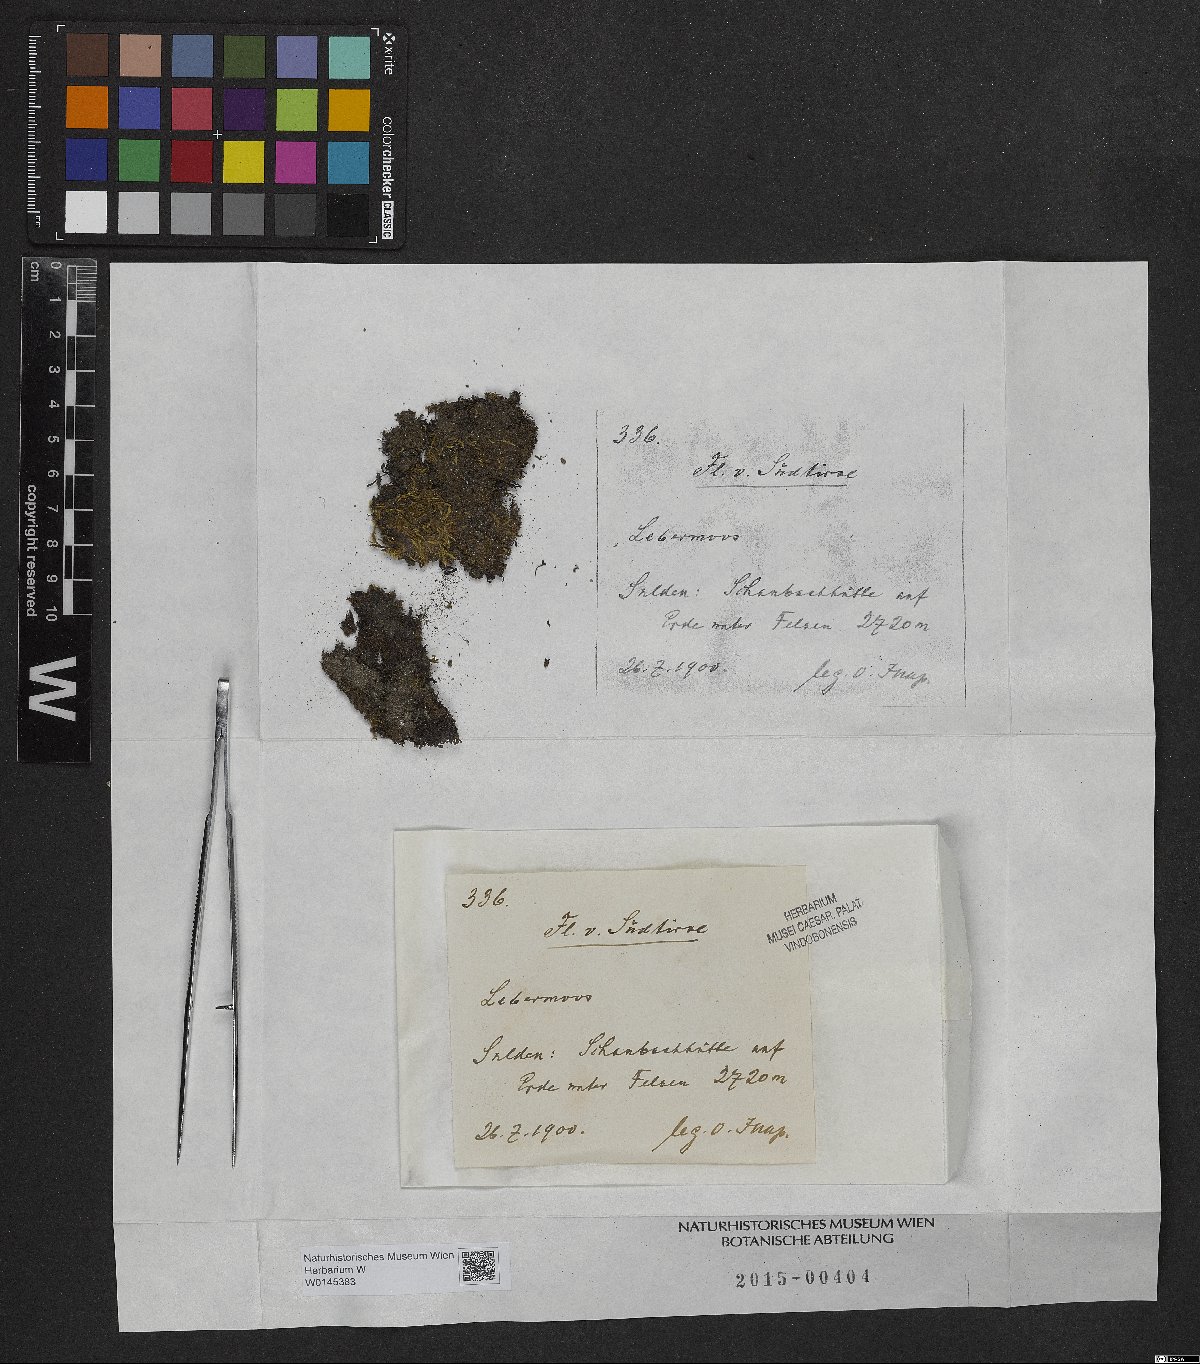 xrite
colorchecker CLASSIC
cm
0 1 2 3 4 5 6 7 8 9 10
copyright reserved
W
336.
Fl. v. Südtirol
Lebermoos
Sulden: Schaubachhütte auf
Erde unter Felsen 2720 m
26.7.1900. leg. O.
336.
Fl. v. Südtirol
Lebermoos
Sulden: Schaubachhütte auf
Erde unter Felsen 2720 m
26.7.1900. leg. O.
HERBARIUM
MUSEI CAESAR. PALAT.
VINDOBONENSIS
NATURHISTORISCHES MUSEUM WIEN
BOTANISCHE ABTEILUNG
2015-00404
Naturhistorisches Museum Wien
Herbarium W
W0145383